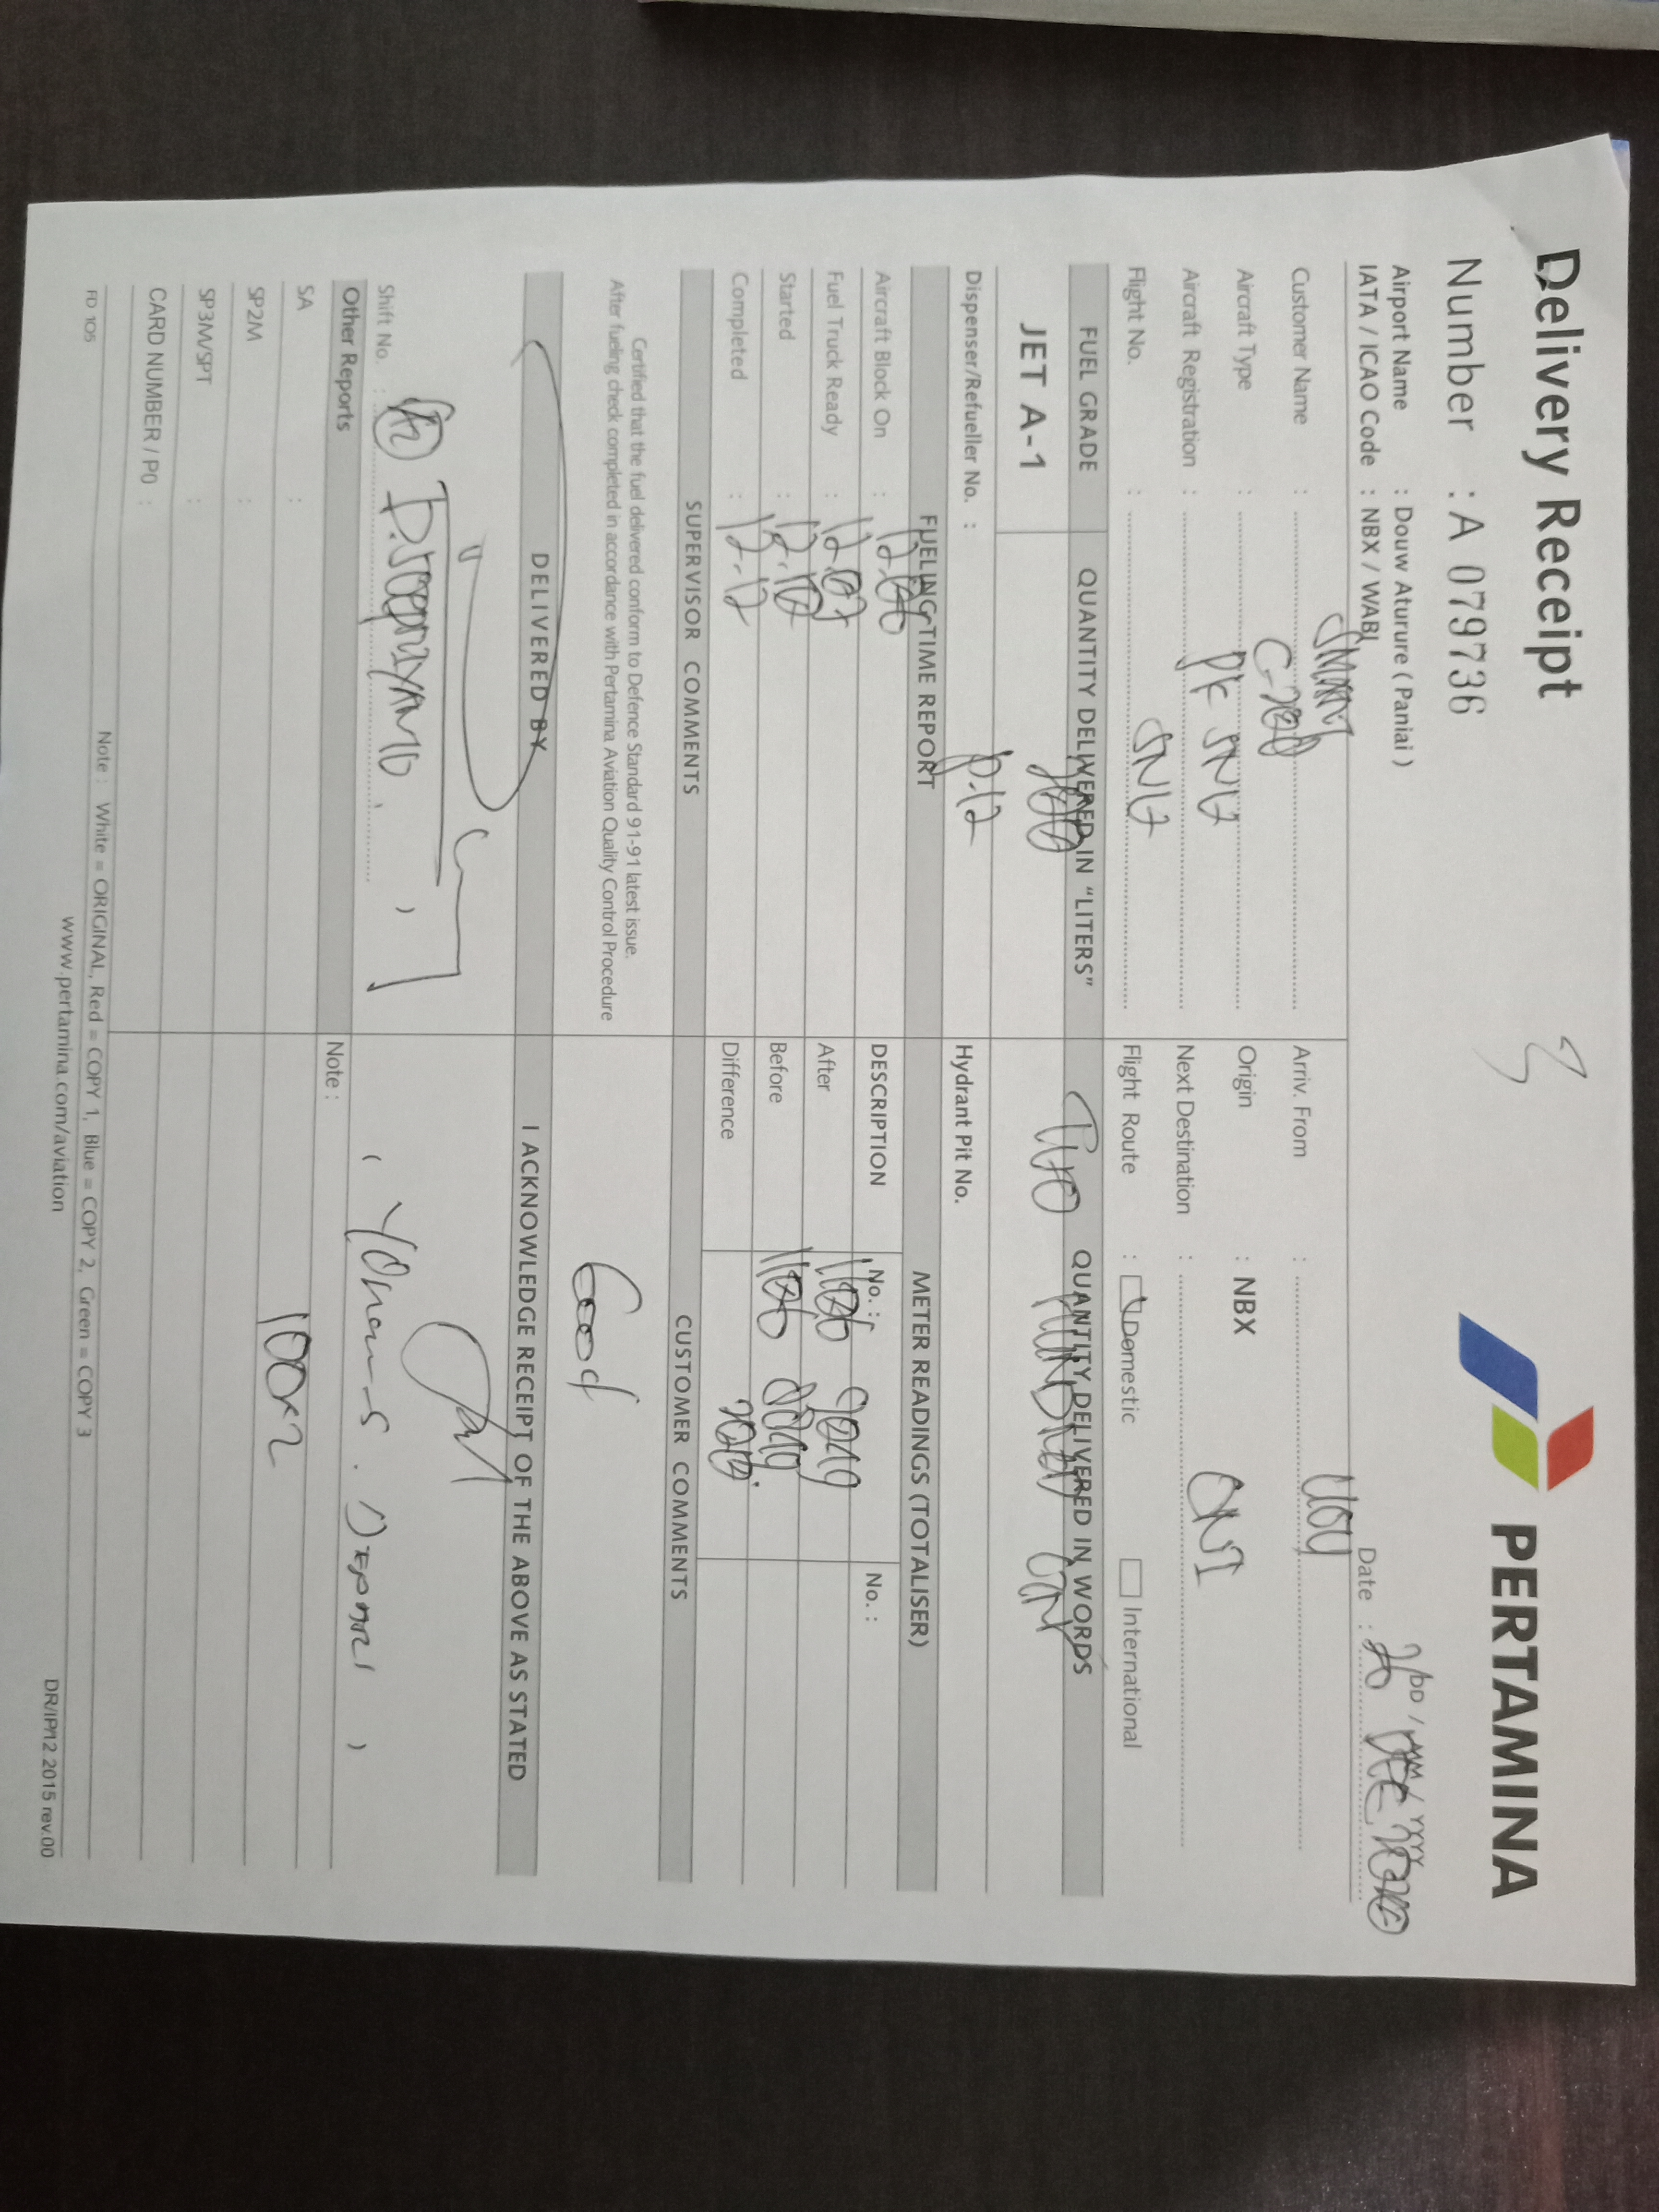 Delivery Receipt
PERTAMINA
Number : A 079736
Airport Name : Douw Aturure ( Paniai )
IATA / ICAO Code : NBX / WABL
DD / MM / YYYY
Date : 26 DEC
Customer Name : SMART
Arriv. From :
Aircraft Type :
Origin : NBX
Aircraft Registration : PK SNU
Next Destination :
Flight No. : SNU
Flight Route : Domestic International
FUEL GRADE
QUANTITY DELIVERED IN "LITERS"
QUANTITY DELIVERED IN WORDS
JET A-1
200
Two HUNDRED
Dispenser/Refueller No. : P.12
Hydrant Pit No.
FUELING TIME REPORT
METER READINGS (TOTALISER)
Aircraft Block On : 12.06
DESCRIPTION
No. :
No. :
Fuel Truck Ready : 12.07
After
Started : 12.10
Before
Completed : 12.12
Difference
SUPERVISOR COMMENTS
CUSTOMER COMMENTS
Certified that the fuel delivered conform to Defence Standard 91-91 latest issue.
After fueling check completed in accordance with Pertamina Aviation Quality Control Procedure
Good
DELIVERED BY
I ACKNOWLEDGE RECEIPT OF THE ABOVE AS STATED
Shift No. :
Other Reports
Note :
SA :
100x2
SP2M :
SP3M/SPT :
CARD NUMBER / PO :
Note : White = ORIGINAL, Red = COPY 1, Blue = COPY 2, Green = COPY 3
FD 105
www.pertamina.com/aviation
DR/IP/12.2015 rev.00